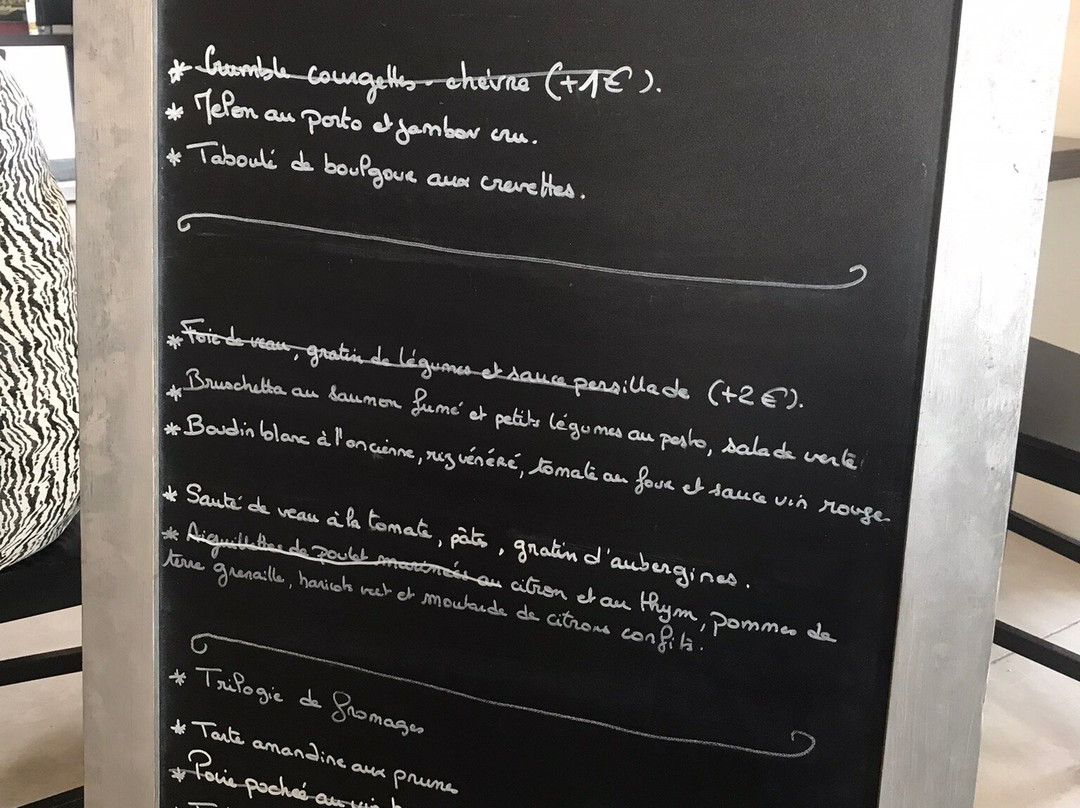 * Crumble courgettes - chèvre (+1€).
* Melon au porto et jambon cru.
* Taboulé de boulgour aux crevettes.
* Foie de veau, gratin de légumes et sauce persillade (+2€).
* Bruschetta au saumon fumé et petits légumes au pesto, salade verte
* Boudin blanc à l'ancienne, riz vénéré, tomate au four et sauce vin rouge
* Sauté de veau à la tomate, pâtes, gratin d'aubergines.
* Aiguillettes de poulet marinées au citron et au thym, pommes de
terre grenaille, haricots vert et moutarde de citrons confits.
* Trilogie de fromages
* Tarte amandine aux prunes
* Poire pochée au vin